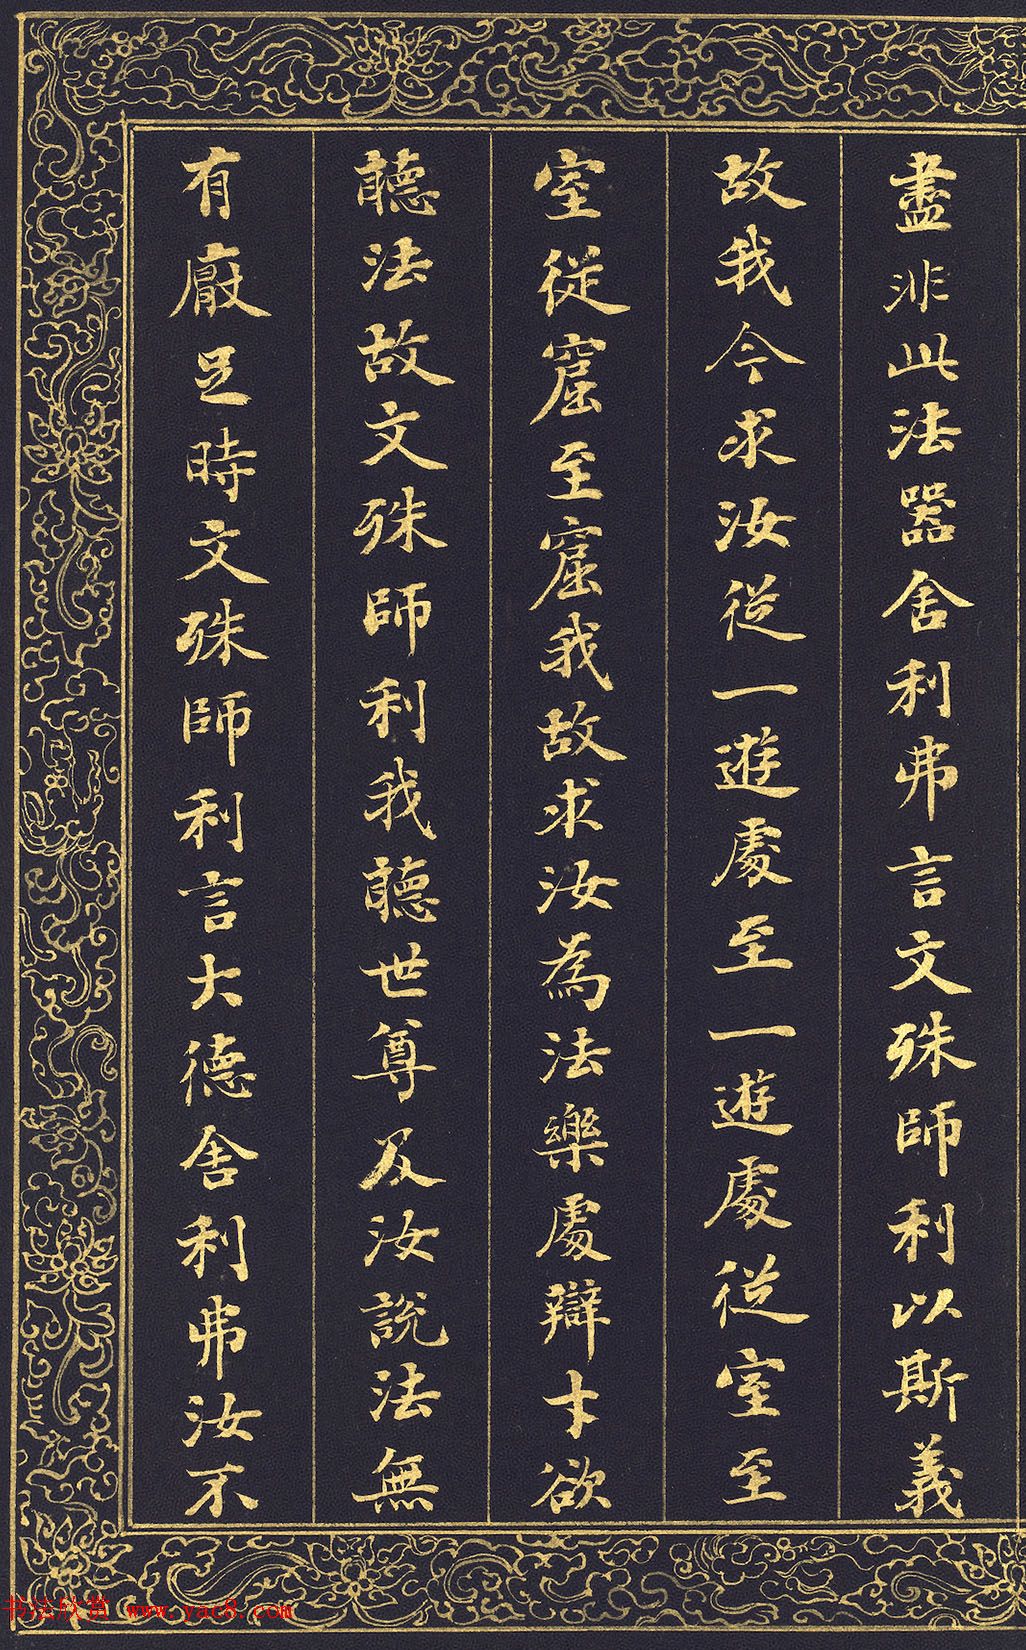 盡非此法器舍利弗言文殊師利以斯義
故我今求汝從一遊處至一遊處從室至
室從窟至窟我故求汝為法樂處辯才欲
聽法故文殊師利我聽世尊及汝說法無
有厭足時文殊師利言大德舍利弗汝不
书法欣赏 www.yac8.com